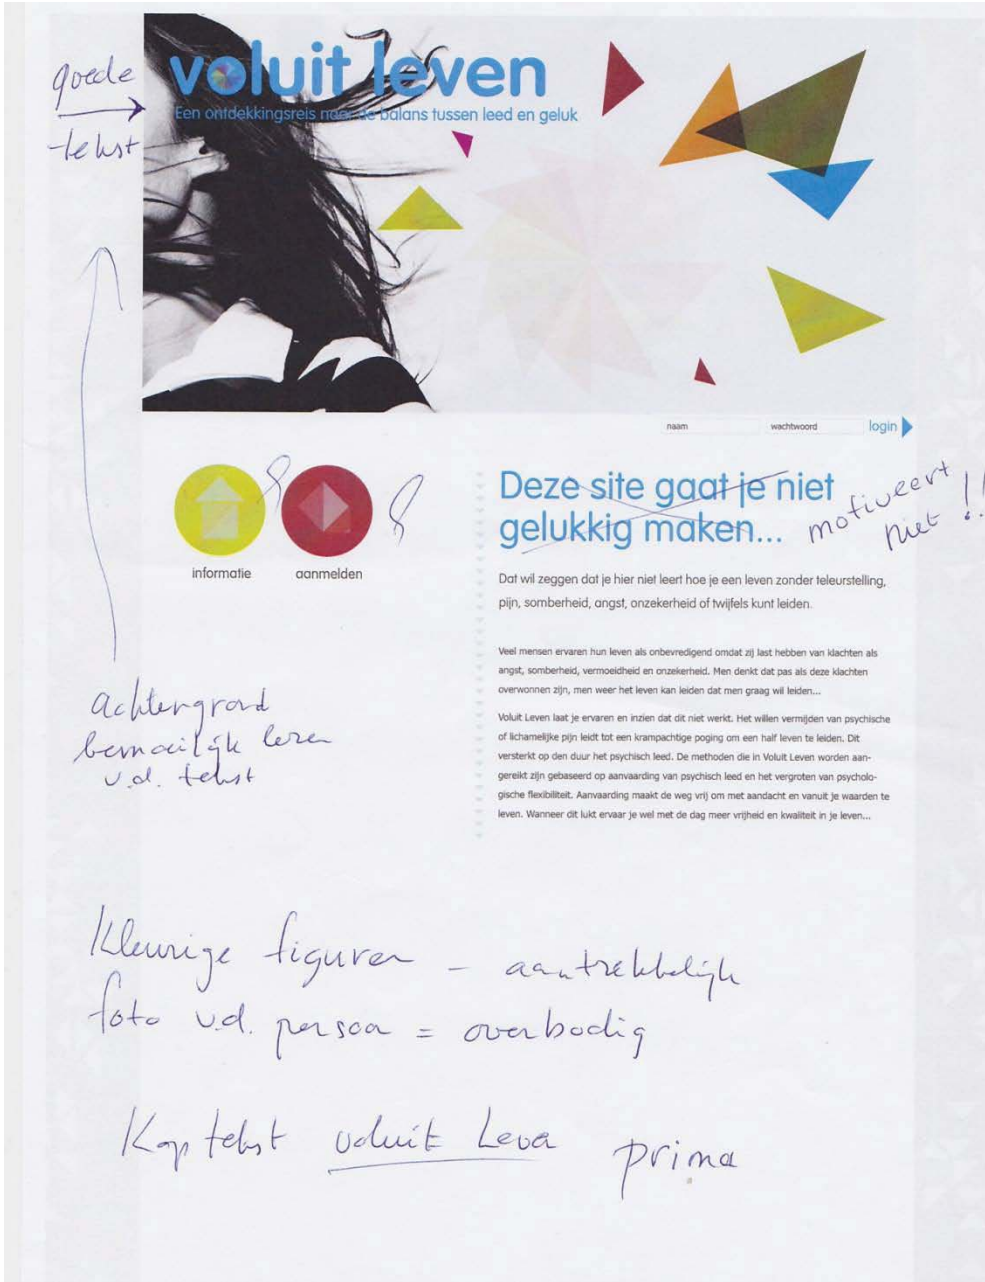 goede
tekst
voluit leven
Een ontdekkingsreis naar de balans tussen leed en geluk
naam wachtwoord login
informatie aanmelden
Deze site gaat je niet
gelukkig maken...
motiveert
niet !!
Dat wil zeggen dat je hier niet leert hoe je een leven zonder teleurstelling,
pijn, somberheid, angst, onzekerheid of twijfels kunt leiden.
Veel mensen ervaren hun leven als onbevredigend omdat zij last hebben van klachten als
angst, somberheid, vermoeidheid en onzekerheid. Men denkt dat pas als deze klachten
overwonnen zijn, men weer het leven kan leiden dat men graag wil leiden...
Voluit Leven laat je ervaren en inzien dat dit niet werkt. Het willen vermijden van psychische
of lichamelijke pijn leidt tot een krampachtige poging om een half leven te leiden. Dit
versterkt op den duur het psychisch leed. De methoden die in Voluit Leven worden aan-
gereikt zijn gebaseerd op aanvaarding van psychisch leed en het vergroten van psycholo-
gische flexibiliteit. Aanvaarding maakt de weg vrij om met aandacht en vanuit je waarden te
leven. Wanneer dit lukt ervaar je wel met de dag meer vrijheid en kwaliteit in je leven...
achtergrond
bemoeilijk lezen
v.d. tekst
Kleurige figuren – aantrekkelijk
foto v.d. persoon = overbodig
Kop tekst voluit Leven prima